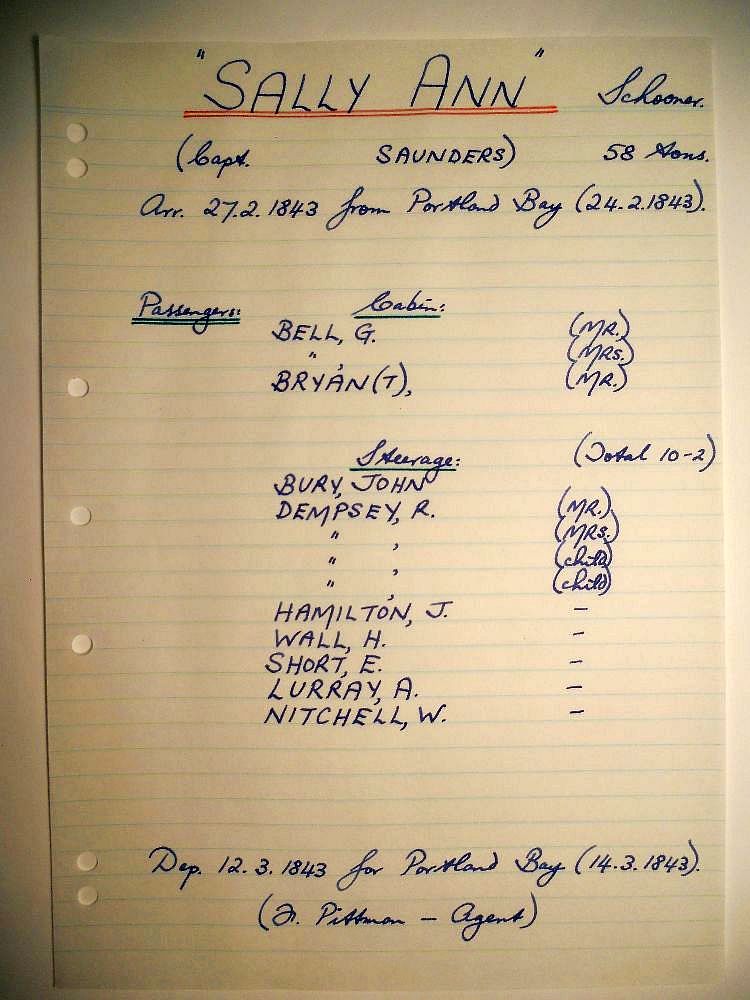 "SALLY ANN" Schooner.
(Capt. SAUNDERS) 58 tons.
Arr. 27.2.1843 from Portland Bay (24.2.1843).
Passengers: Cabin:
BELL, G. (MR.)
" , (MRS.)
BRYAN(T), (MR.)
Steerage: (Total 10-2)
BURY, JOHN
DEMPSEY, R. (MR.)
" , (MRS.)
" , (child)
" , (child)
HAMILTON, J. -
WALL, H. -
SHORT, E. -
LURRAY, A. -
NITCHELL, W. -
Dep. 12.3.1843 for Portland Bay (14.3.1843).
Pittman - Agent)